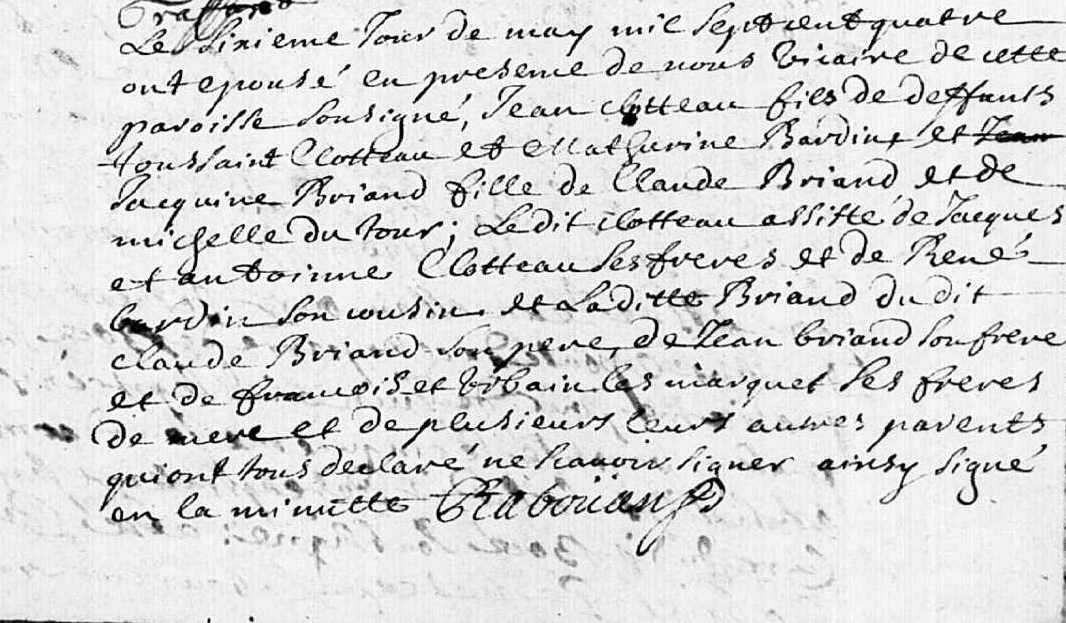 Le Sixieme Jour de may mil Sept cent quatre
ont epousé en presence de nous Vicaire de cette
paroisse Soussigné, Jean Clotteau fils de deffunts
toussaint Clotteau et Mathurine Bardin, et Jean
Jacquine Briand fille de Claude Briand et de
michelle du tour; Le dit Clotteau assitté de Jacques
et antoinne Clotteau Ses freres et de René
bardin Son cousin. et La ditte Briand du dit
Claude Briand Son pere, de Jean briand Son frere
et de francois et Urbain les marquet Ses freres
de mere et de plusieurs leurs autres parents
qui ont tous declaré ne Scavoir signer ainsy signé
en la minutte